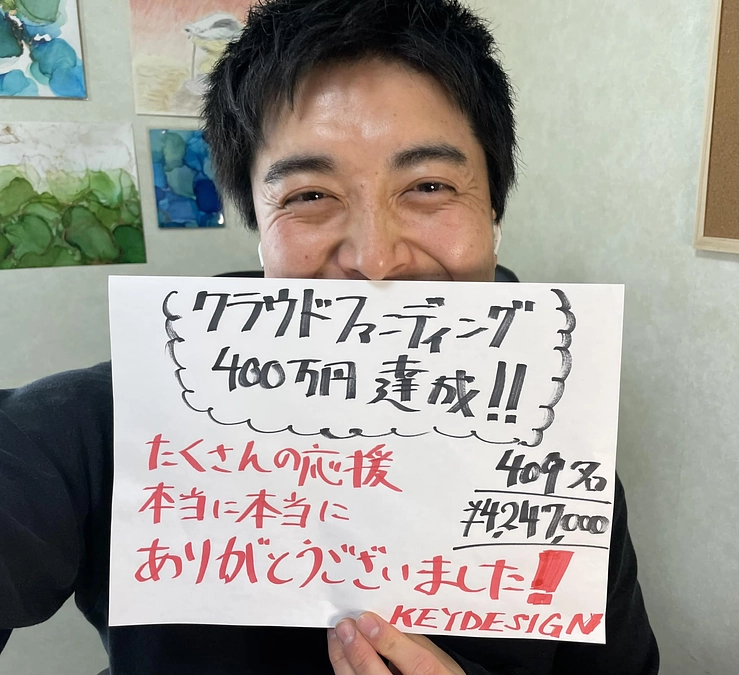 クラウドファンディング
400万円達成!!
たくさんの応援
本当に本当に
ありがとうございました!!
409名
¥4,247,000
KEYDESIGN